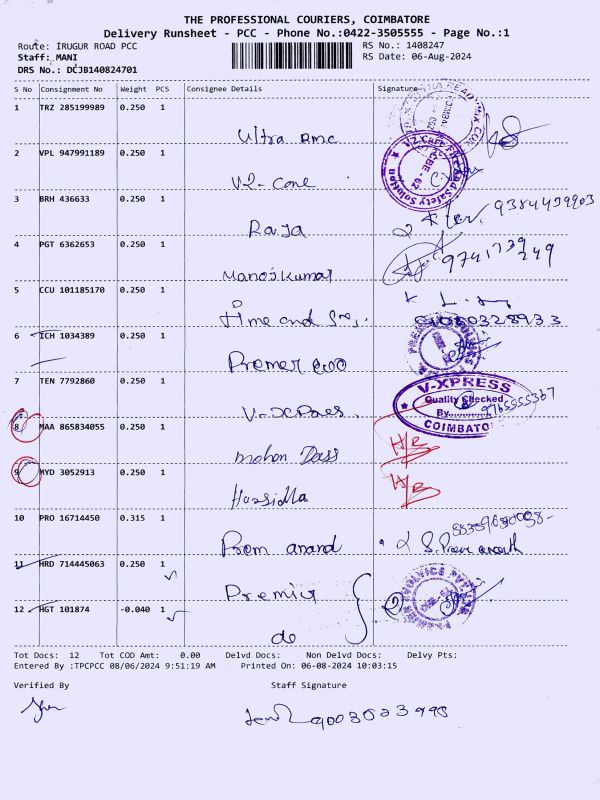 THE PROFESSIONAL COURIERS, COIMBATORE
Delivery Runsheet - PCC - Phone No.:0422-3505555 - Page No.:1
Route: IRUGUR ROAD PCC
Staff: MANI
DRS No.: DCJB140824701
RS No.: 1408247
RS Date: 06-Aug-2024
S No Consignment No Weight PCS Consignee Details Signature
1 TRZ 285199989 0.250 1
Ultra Rmc
2 VPL 947991189 0.250 1
V2-Cone
3 BRH 436633 0.250 1
Raja
4 PGT 6362653 0.250 1
Manojkumar
9741739249
5 CCU 101185170 0.250 1
6 ICH 1034389 0.250 1
Premier
7 TEN 7792860 0.250 1
V-XPRESS
Quality Checked
By
COIMBATO
9765555367
8 MAA 865834055 0.250 1
mohan Dass
9 MYD 3052913 0.250 1
10 PRO 16714450 0.315 1
Prem anand
11 HRD 714445063 0.250 1
Premier
12 HGT 101874 -0.040 1
do
Tot Docs: 12 Tot COD Amt: 0.00 Delvd Docs: Non Delvd Docs: Delvy Pts:
Entered By :TPCPCC 08/06/2024 9:51:19 AM Printed On: 06-08-2024 10:03:15
Verified By Staff Signature